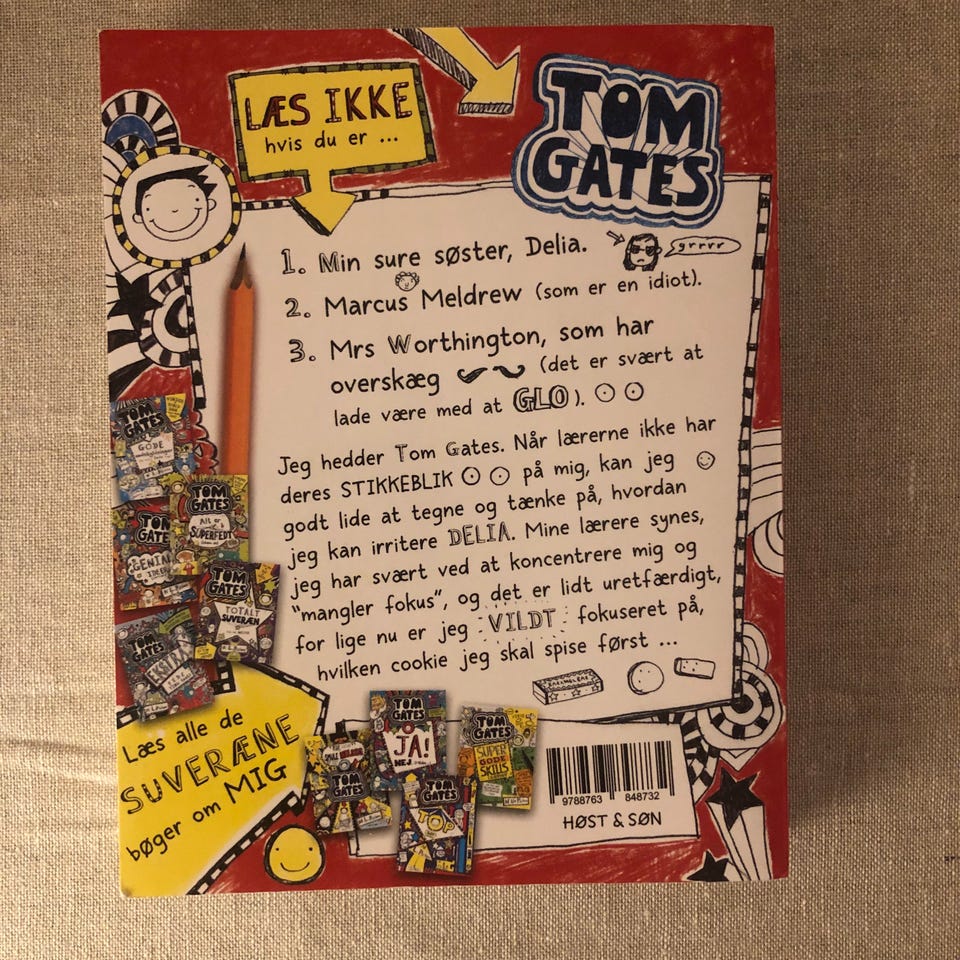 LÆS IKKE
hvis du er ...
TOM
GATES
1. Min sure søster, Delia.
grrrr
2. Marcus Meldrew (som er en idiot).
3. Mrs Worthington, som har
overskæg (det er svært at
lade være med at GLO).
Jeg hedder Tom Gates. Når lærerne ikke har
deres STIKKEBLIK på mig, kan jeg
godt lide at tegne og tænke på, hvordan
jeg kan irritere DELIA. Mine lærere synes,
jeg har svært ved at koncentrere mig og
"mangler fokus", og det er lidt uretfærdigt,
for lige nu er jeg VILDT fokuseret på,
hvilken cookie jeg skal spise først ...
TOM
GATES
GODE
TOM
GATES
Alt er
SUPERFEDT
TOM
GATE
GENIA
TOM
GATES
TOTALT
SUVERÆN
TOM
GATES
Læs alle de
SUVERÆNE
bøger om MIG
TOM
GATES
JA!
NEJ
TOM
GATES
TOM
GATES
SUPER
GODE
SKILLS
TOM
GATES
TOP
9788763 848732
HØST & SØN